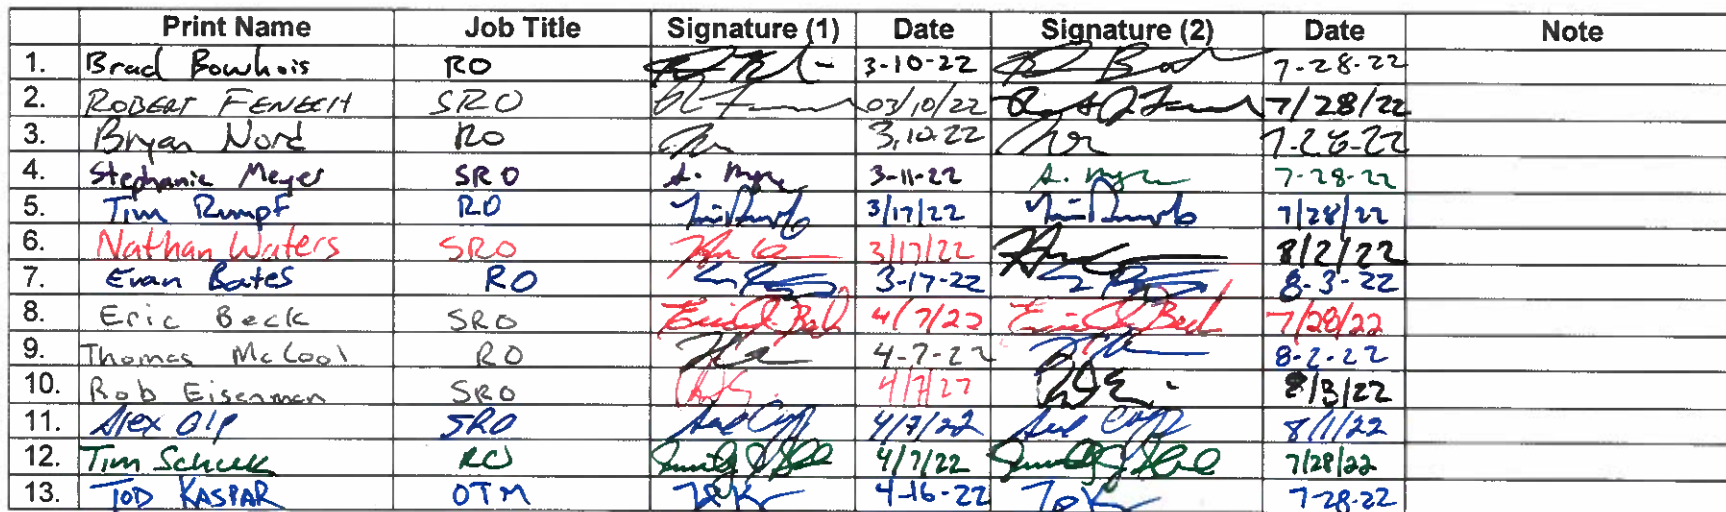 Print Name Job Title Signature (1) Date Signature (2) Date Note
1. Brad Bowhois RO 3-10-22 7-28-22
2. ROBERT FENECH SRO 03/10/22 7/28/22
3. Bryan Nord RO 3.10.22 7-28-22
4. Stephanie Meyer SRO S. Meyer 3-11-22 S. Meyer 7-28-22
5. Tim Rumpf RO Tim Rumpf 3/17/22 Tim Rumpf 7/28/22
6. Nathan Waters SRO 3/17/22 8/2/22
7. Evan Bates RO 3-17-22 8-3-22
8. Eric Beck SRO 4/7/22 7/28/22
9. Thomas McCool RO 4-7-22 8-2-22
10. Rob Eisenman SRO 4/7/22 8/3/22
11. Alex Olp SRO 4/7/22 8/1/22
12. Tim RO 4/7/22 7/28/22
13. TOD KASPAR OTM 4-16-22 7-28-22